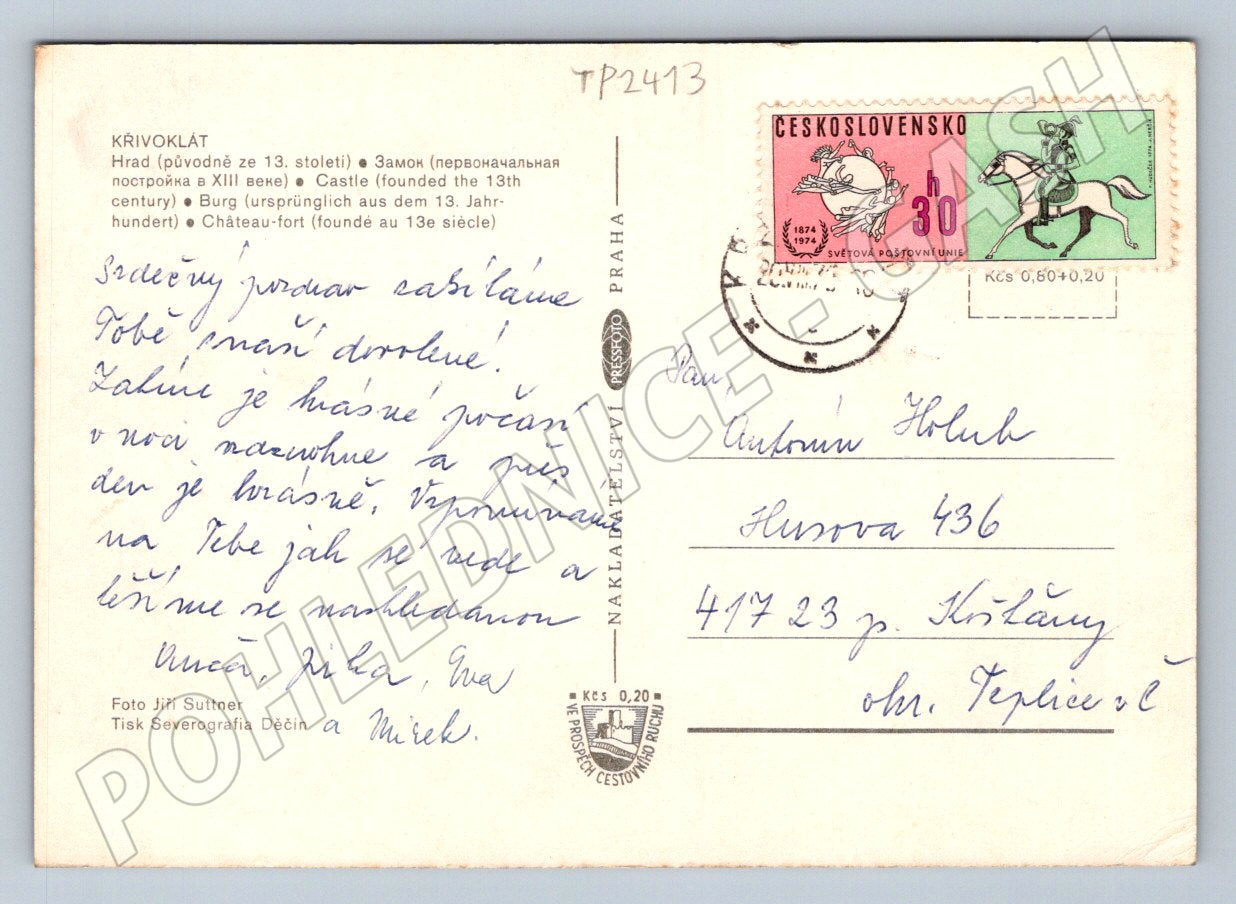 TP2413
KŘIVOKLÁT
Hrad (původně ze 13. století) ● Замок (первоначальная
постройка в XIII веке) ● Castle (founded the 13th
century) ● Burg (ursprünglich aus dem 13. Jahr-
hundert) ● Château-fort (foundé au 13e siècle)
Srdečný pozdrav zasíláme
Tobě z naší dovolené.
Zatím je krásné počasí
v noci a přes
den je krásně. Vzpomínáme
na Tebe jak se vede a
těšíme se nashledanou
Jirka, Eva
a Mirek.
Foto Jiří Suttner
Tisk Severografia Děčín
NAKLADATELSTVÍ PRESSFOTO PRAHA
Kčs 0,20
VE PROSPĚCH CESTOVNÍHO RUCHU
ČESKOSLOVENSKO
h
30
1874
1974
SVĚTOVÁ POŠTOVNÍ UNIE
Kčs 0,80+0,20
Pan,
Antonín Holub
Husova 436
417 23 p. Košťany
okr. Teplice v Č
POHLEDNICE - CASH